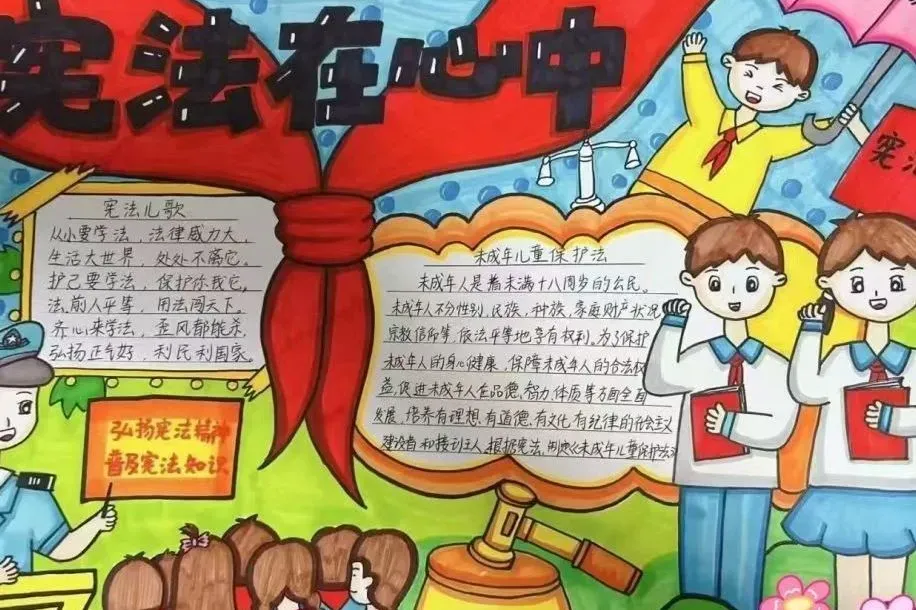 宪法在心中
宪法儿歌
从小要学法，法律威力大，
生活大世界，处处不离它。
护己要学法，保护你我它，
法前人平等，用法闯天下。
齐心来学法，歪风都能杀，
弘扬正气好，利民利国家。
弘扬宪法精神
普及宪法知识
宪
未成年儿童保护法
未成年人是指未满十八周岁的公民。
未成年人不分性别，民族，种族，家庭财产状况
宗教信仰等，依法平等地享有权利，为了保护
未成年人的身心健康，保障未成年人的合法权
益，促进未成年人在品德、智力、体质等方面全面
发展，培养有理想、有道德、有文化、有纪律的社会主义
建设者和接班人，根据宪法，制定未成年儿童保护法